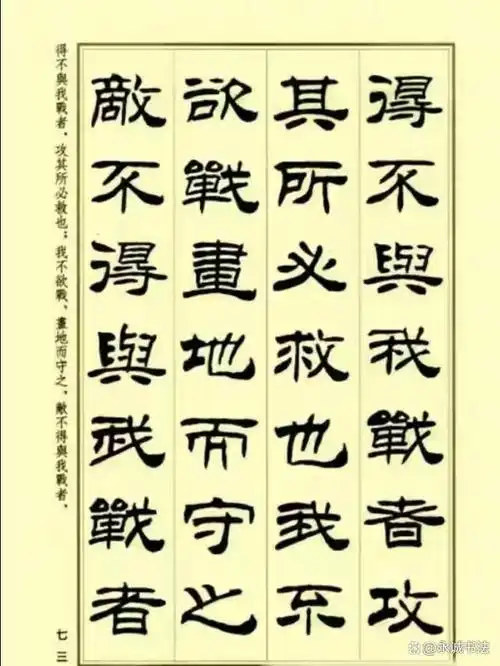 得不與我戰者攻
其所必救也我不
欲戰畫地而守之
敵不得與我戰者
得不與我戰者，攻其所必救也；我不欲戰、畫地而守之，敵不得與我戰者、
七三
永城书法